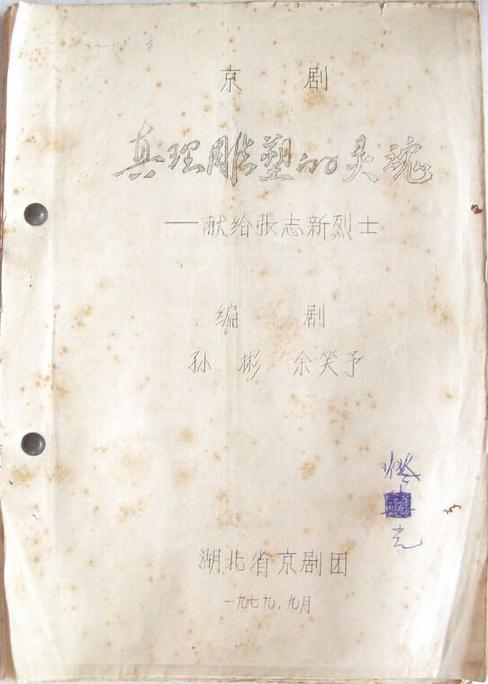 京 剧
真理雕塑的灵魂
——献给張志新烈士
编 剧
孙 彬 余笑予
湖北省京剧团
一九七九.九月